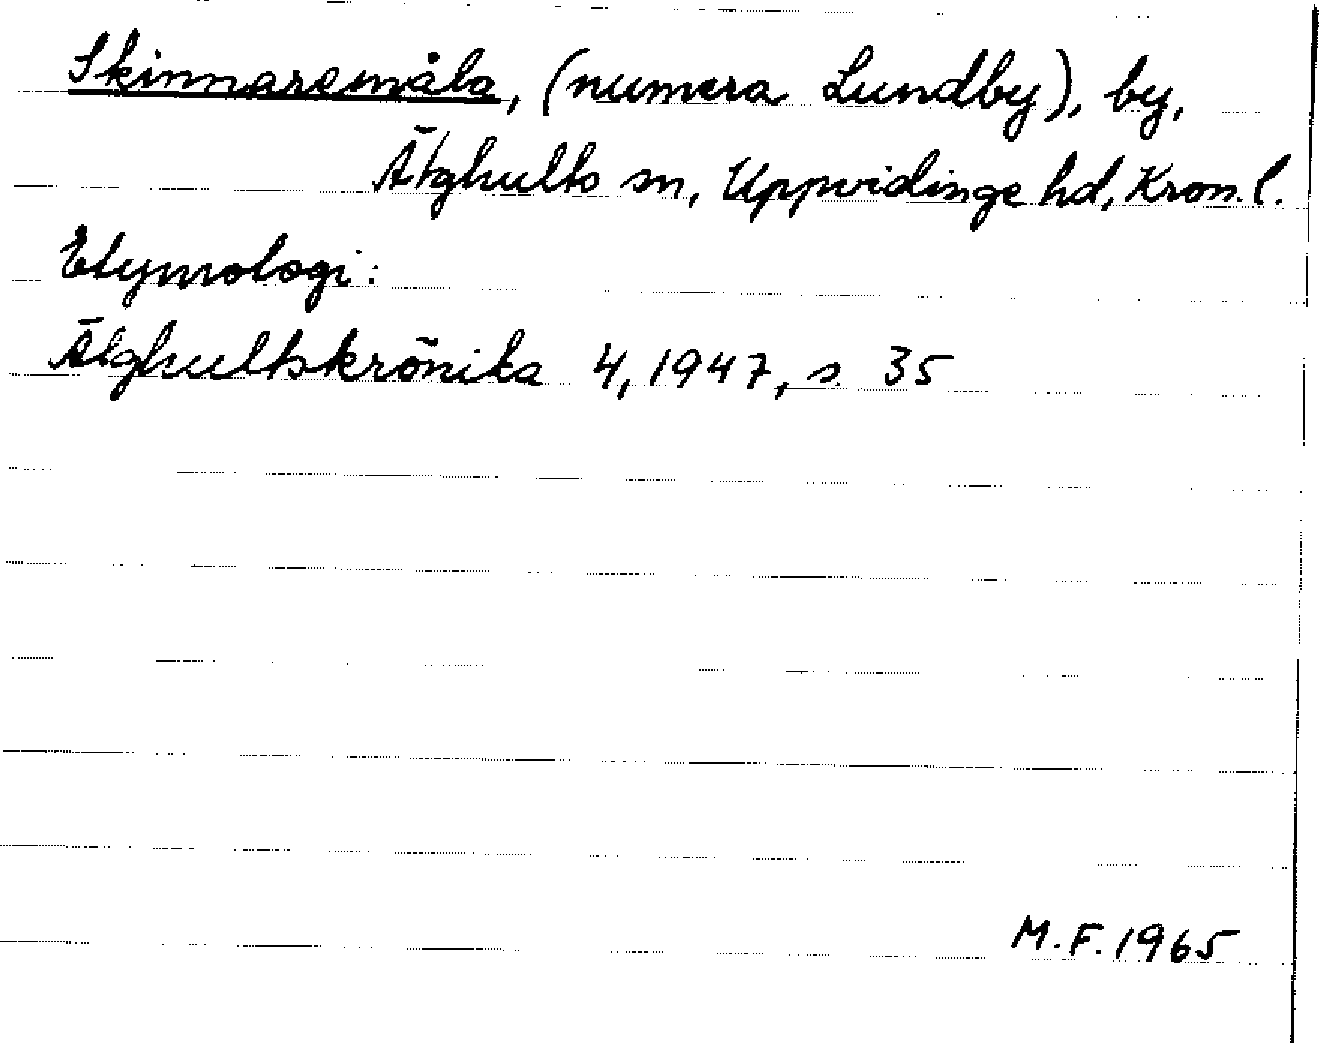 Skinnaremåla, (numera Lundby), by,
Älghults sn, Uppvidinge hd, Kron. l.
Etymologi:
Älghultskrönika 4, 1947, s. 35
M.F. 1965